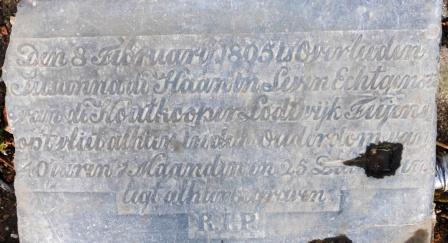 Den 8 Februarij 1805 is Overleeden
Susanna de Haan in Leven Echtgenoo
van de Houtkooper Lodewijk
op t vlieb alhier in den ouderdom van
40 iaren 7 Maanden en 25
ligt alhier begraven
R.I.P.